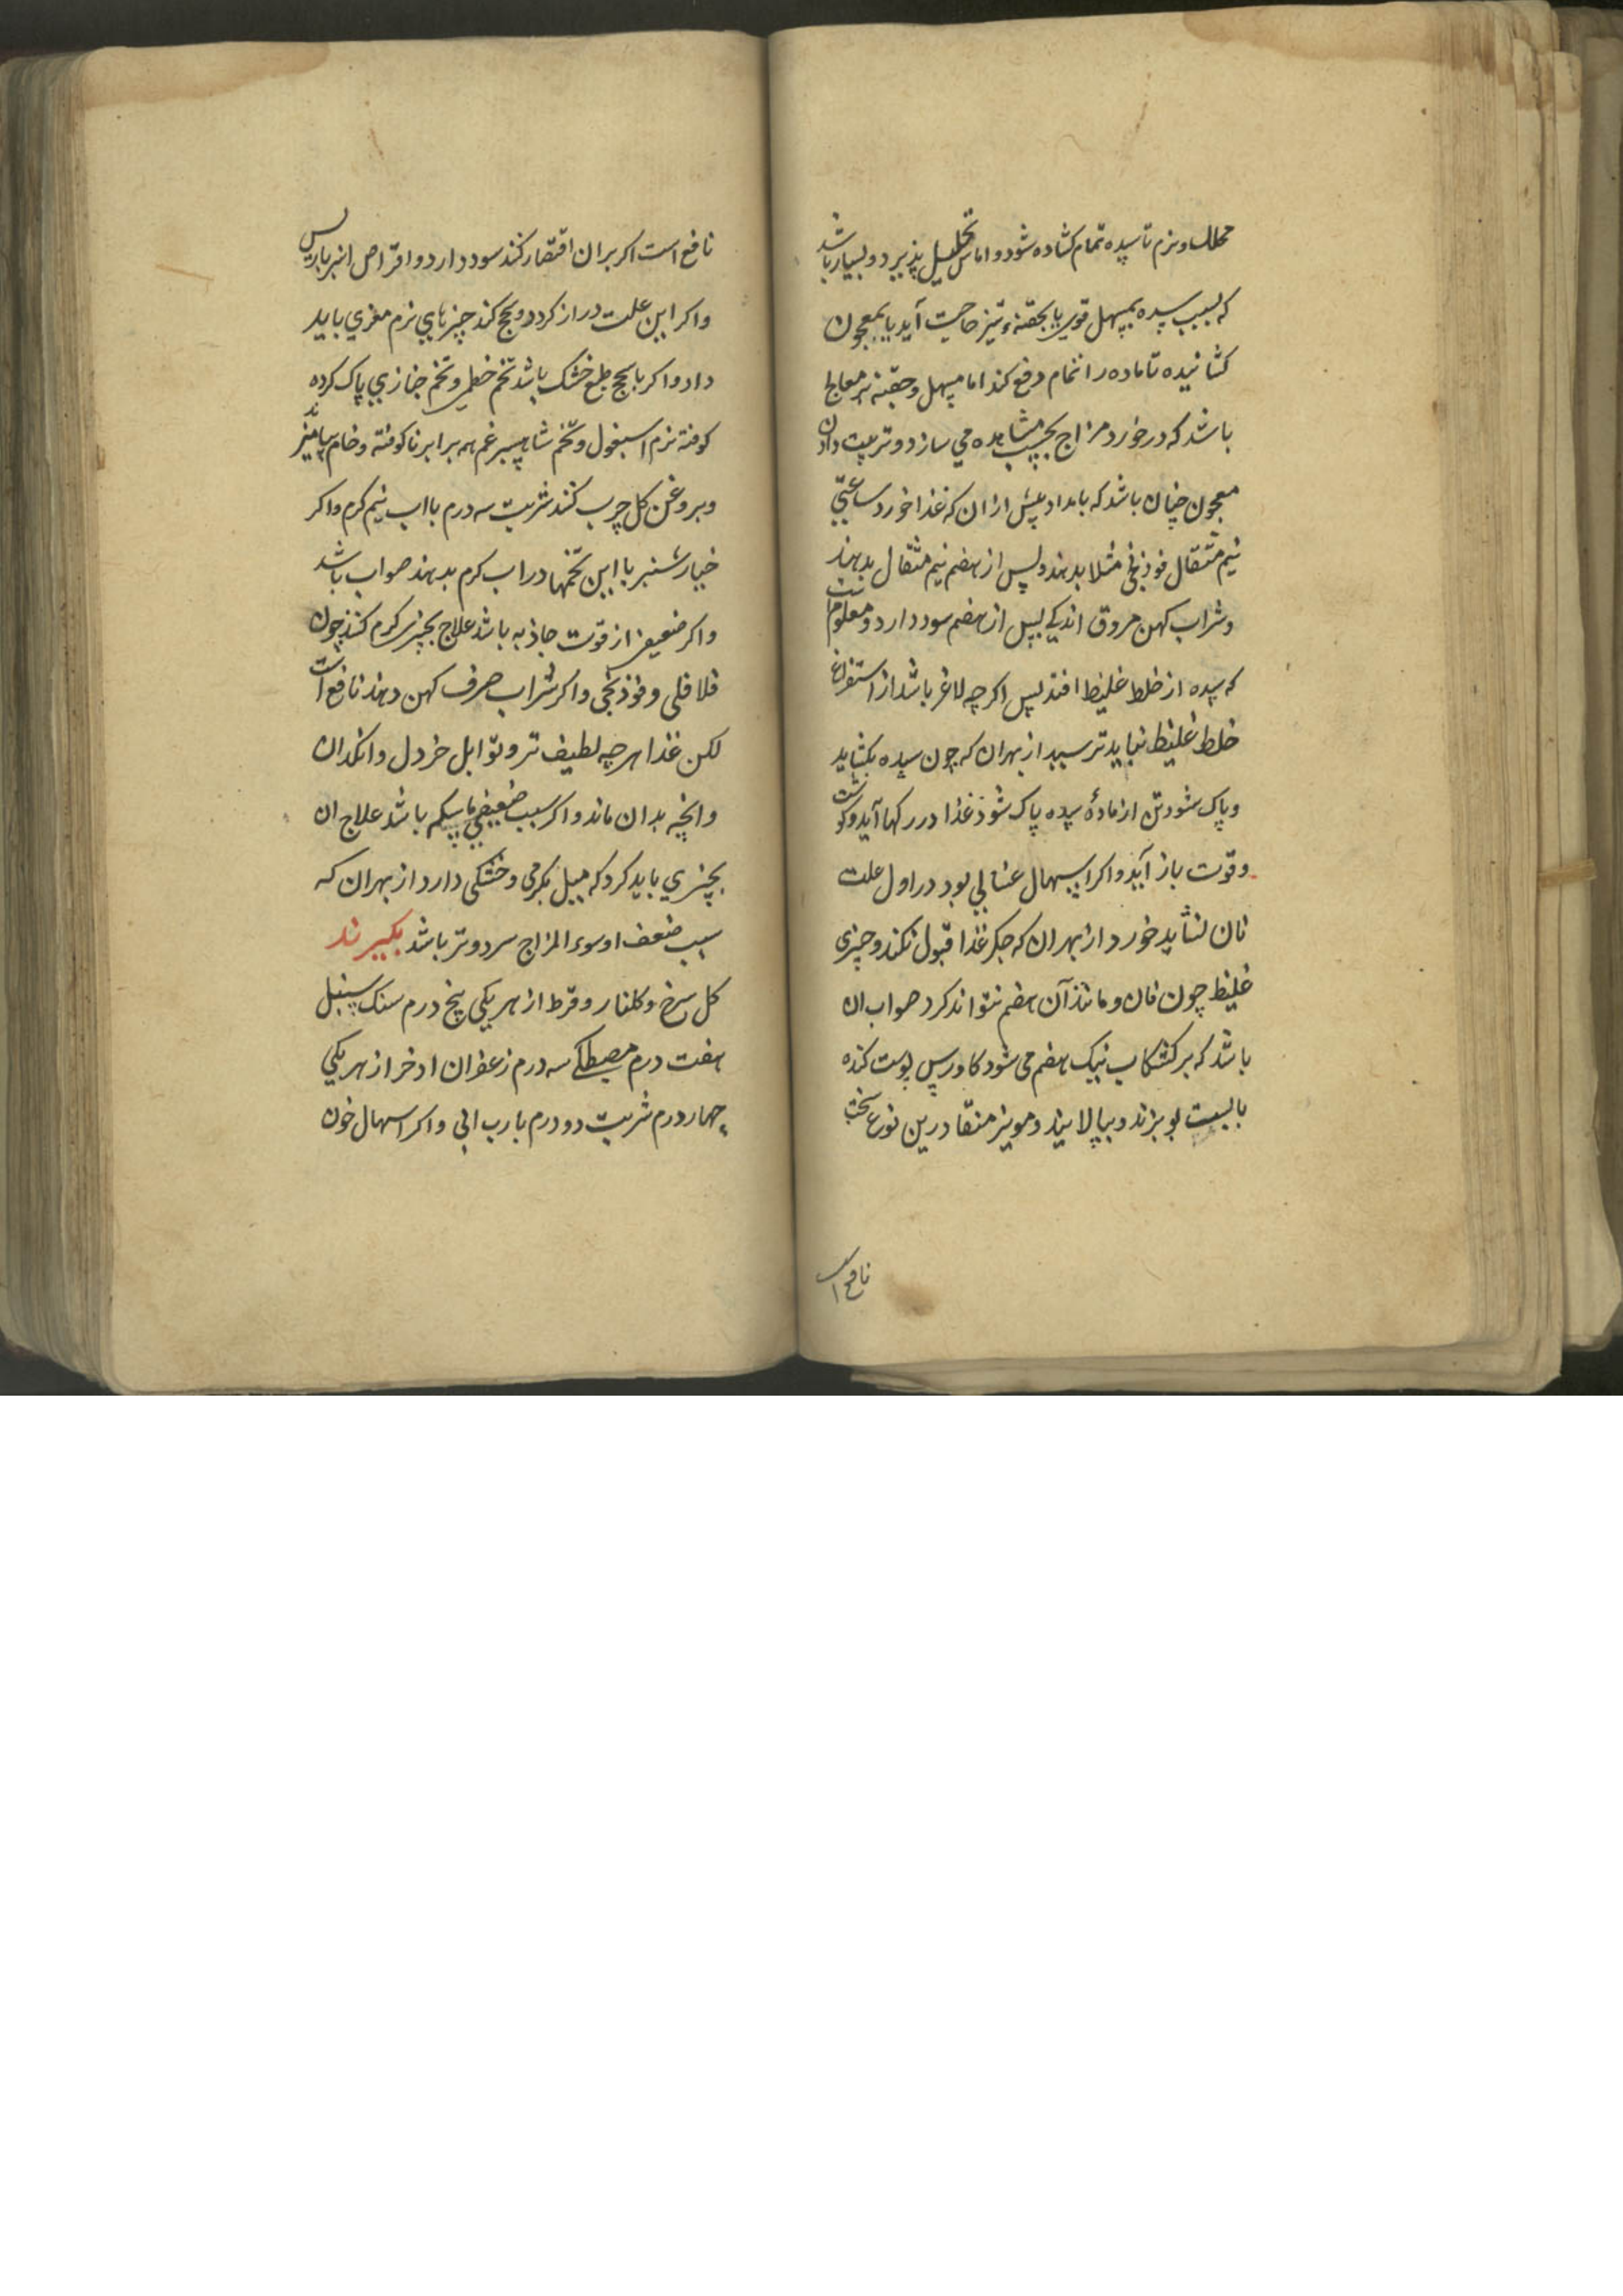 محلل و نرم تا سده تمام کشاده شود و اماس تحلیل پذیرد و بسیار باشد
که بسبب سده بمسهل قوی یا بحقنهٔ تیز حاجت آید یا بمعجون
کشاینده تا ماده را تمام دفع کند اما مسهل و حقنه تیز معالج
باشد که در خورد مزاج بحسب مشاهده می سازد و ترتیب دادن
معجون چنان باشد که بامداد پیش ازان که غذا خورد ساعتی
نیم مثقال فوذنجی مثلا بدهند و پس از هضم نیم مثقال بدهند
و شراب کهن مروق اندکی پس از هضم سود دارد و معلوم است
که سده از خلط غلیظ افتد پس اکرچه لاغر باشد از استفراغ
خلط غلیظ نباید ترسید از بهران که چون سده بکشاید
و پاک شود تن از مادهٔ سده پاک شود غذا در رکها آید و کوشت
و قوت باز آید و اکر اسهال غسالی بود در اول علت
نان نشاید خورد از بهران که جکر غذا قبول نکند و چیزی
غلیظ چون نان و مانند آن هضم نتواند کرد صواب ان
باشد که بر کشکاب نیک هضم می شود کاورس پوست کنده
بابست بو بزند و بپالایند و مویز منقا درین نوع سخت
نافع است
نافع است اکر بران اقتصار کنند سود دارد و اقراص انبرباریس
و اکر این علت دراز کردد و سحج کند چیزهای نرم مغزی باید
داد و اکر با سحج طبع خشک باشد تخم خطمی و تخم خبازی پاک کرده
کوفته نرم اسبغول و تخم شاهسبرغم همه برابر ناکوفته و خام بیامیزند
و بروغن کل چرب کنند شربت سه درم بااب نیم کرم و اکر
خیارشنبر با این تخمها در اب کرم بدهند صواب باشد
و اکر ضعیفی از قوت جاذبه باشد علاج بچیزی کرم کنند چون
فلافلی و فوذنجی و اکر شراب صرف کهن دهند نافع است
لکن غذا هرچه لطیف تر و توابل خردل و انکدان
و انچه بدان ماند و اکر سبب ضعیفی ماسکه باشد علاج ان
بچیزی باید کرد که میل بکرمی و خشکی دارد از بهران که
سبب ضعف او سوء المزاج سرد و تر باشد بکیرند
کل سرخ و کلنار و قرط از هر یکی پنج درم سنک سنبل
هفت درم مصطکی سه درم زعفران اذخر از هر یکی
چهار درم شربت دو درم با رب ابی و اکر اسهال خون